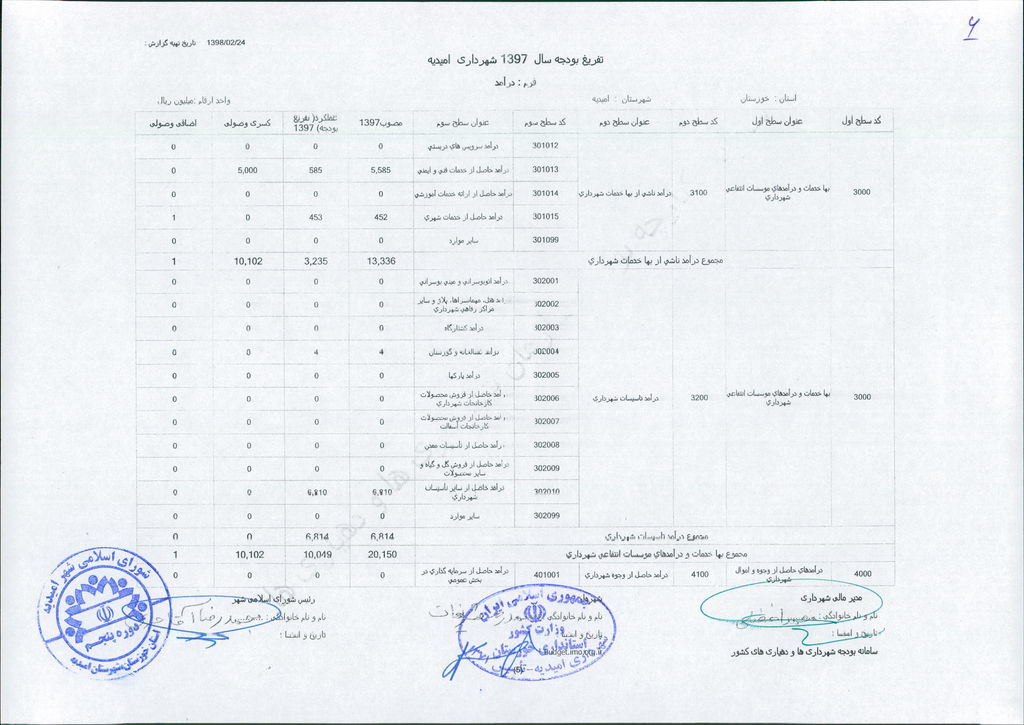 ۷
تاریخ تهیه گزارش : 1398/02/24
تفریغ بودجه سال 1397 شهرداری امیدیه
فرم : درآمد
استان : خوزستان شهرستان : امیدیه واحد ارقام :میلیون ریال
کد سطح اول عنوان سطح اول کد سطح دوم عنوان سطح دوم کد سطح سوم عنوان سطح سوم مصوب1397 عملکرد( تفریغ بودجه) 1397 کسری وصولی اضافی وصولی
3000 بها خدمات و درآمدهاي موسسات انتفاعي شهرداري 3100 درآمد ناشي از بها خدمات شهرداري
301012 درآمد سرویس های دربستی 0 0 0 0
301013 درآمد حاصل از خدمات فني و ايمني 5,585 585 5,000 0
301014 درآمد حاصل از ارائه خدمات آموزشي 0 0 0 0
301015 درآمد حاصل از خدمات شهري 452 453 0 1
301099 ساير موارد 0 0 0 0
مجموع درآمد ناشي از بها خدمات شهرداري 13,336 3,235 10,102 1
3000 بها خدمات و درآمدهاي موسسات انتفاعي شهرداري 3200 درآمد تاسيسات شهرداري
302001 درآمد اتوبوسراني و ميني بوسراني 0 0 0 0
302002 درآمد هتل، مهمانسراها، پلاژ و ساير مراكز رفاهي شهرداري 0 0 0 0
302003 درآمد كشتارگاه 0 0 0 0
302004 درآمد غسالخانه و گورستان 4 4 0 0
302005 درآمد پاركها 0 0 0 0
302006 درآمد حاصل از فروش محصولات كارخانجات شهرداري 0 0 0 0
302007 درآمد حاصل از فروش محصولات كارخانجات آسفالت 0 0 0 0
302008 درآمد حاصل از تأسيسات معدن 0 0 0 0
302009 درآمد حاصل از فروش گل و گياه و ساير محصولات 0 0 0 0
302010 درآمد حاصل از ساير تأسيسات شهرداري 6,810 6,810 0 0
302099 ساير موارد 0 0 0 0
مجموع درآمد تاسيسات شهرداري 6,814 6,814 0 0
مجموع بها خدمات و درآمدهاي موسسات انتفاعي شهرداري 20,150 10,049 10,102 1
4000 درآمدهاي حاصل از وجوه و اموال شهرداري 4100 درآمد حاصل از وجوه شهرداري 401001 درآمد حاصل از سرمايه گذاري در بخش عمومي 0 0 0 0
مدیر مالی شهرداری شهردار رئیس شورای اسلامی شهر
نام و نام خانوادگی : نام و نام خانوادگی : نام و نام خانوادگی :
تاریخ و امضا : تاریخ و امضا : تاریخ و امضا :
سامانه بودجه شهرداری ها و دهیاری های کشور Budget.imo.org.ir
(5)
جمهوری اسلامی ایران
وزارت کشور
استانداری خوزستان
شورای اسلامی شهر امیدیه
دوره پنجم
استان خوزستان شهرستان امیدیه